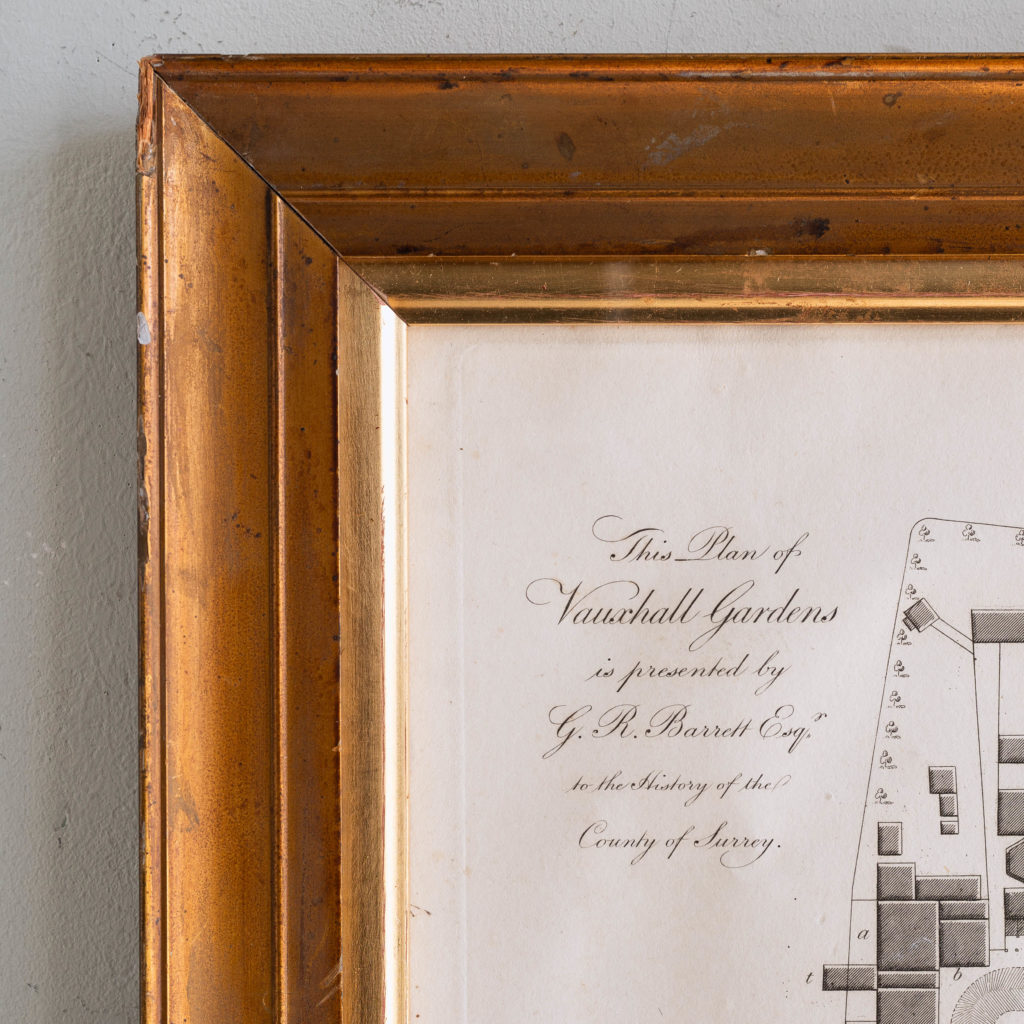 This Plan of
Vauxhall Gardens
is presented by
G. R. Barrett Esqr.
to the History of the
County of Surrey.
a
t
b